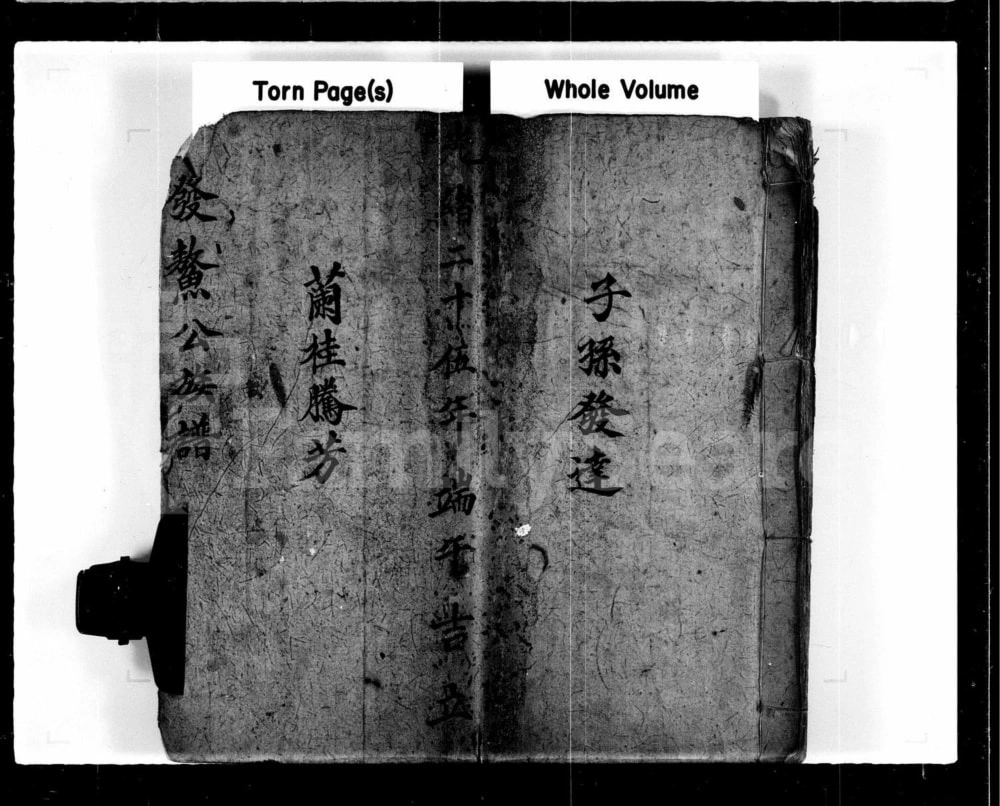 Torn Page(s)
Whole Volume
子孫發達
緒二十伍年 端平 吉立
蘭桂騰芳
發鰲公族譜
FamilySearch